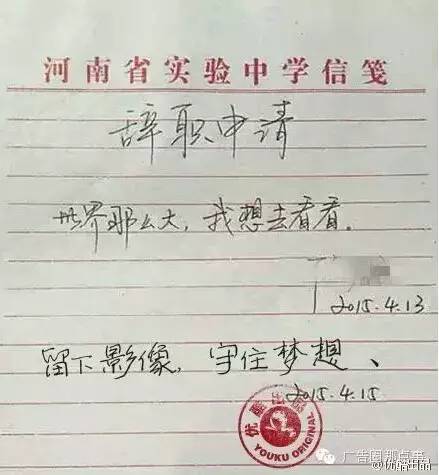 河南省实验中学信笺
辞职申请
世界那么大，我想去看看。
2015.4.13
留下影像，守住梦想、
2015.4.15
优酷出品
YOUKU ORIGINAL
广告圈那点事